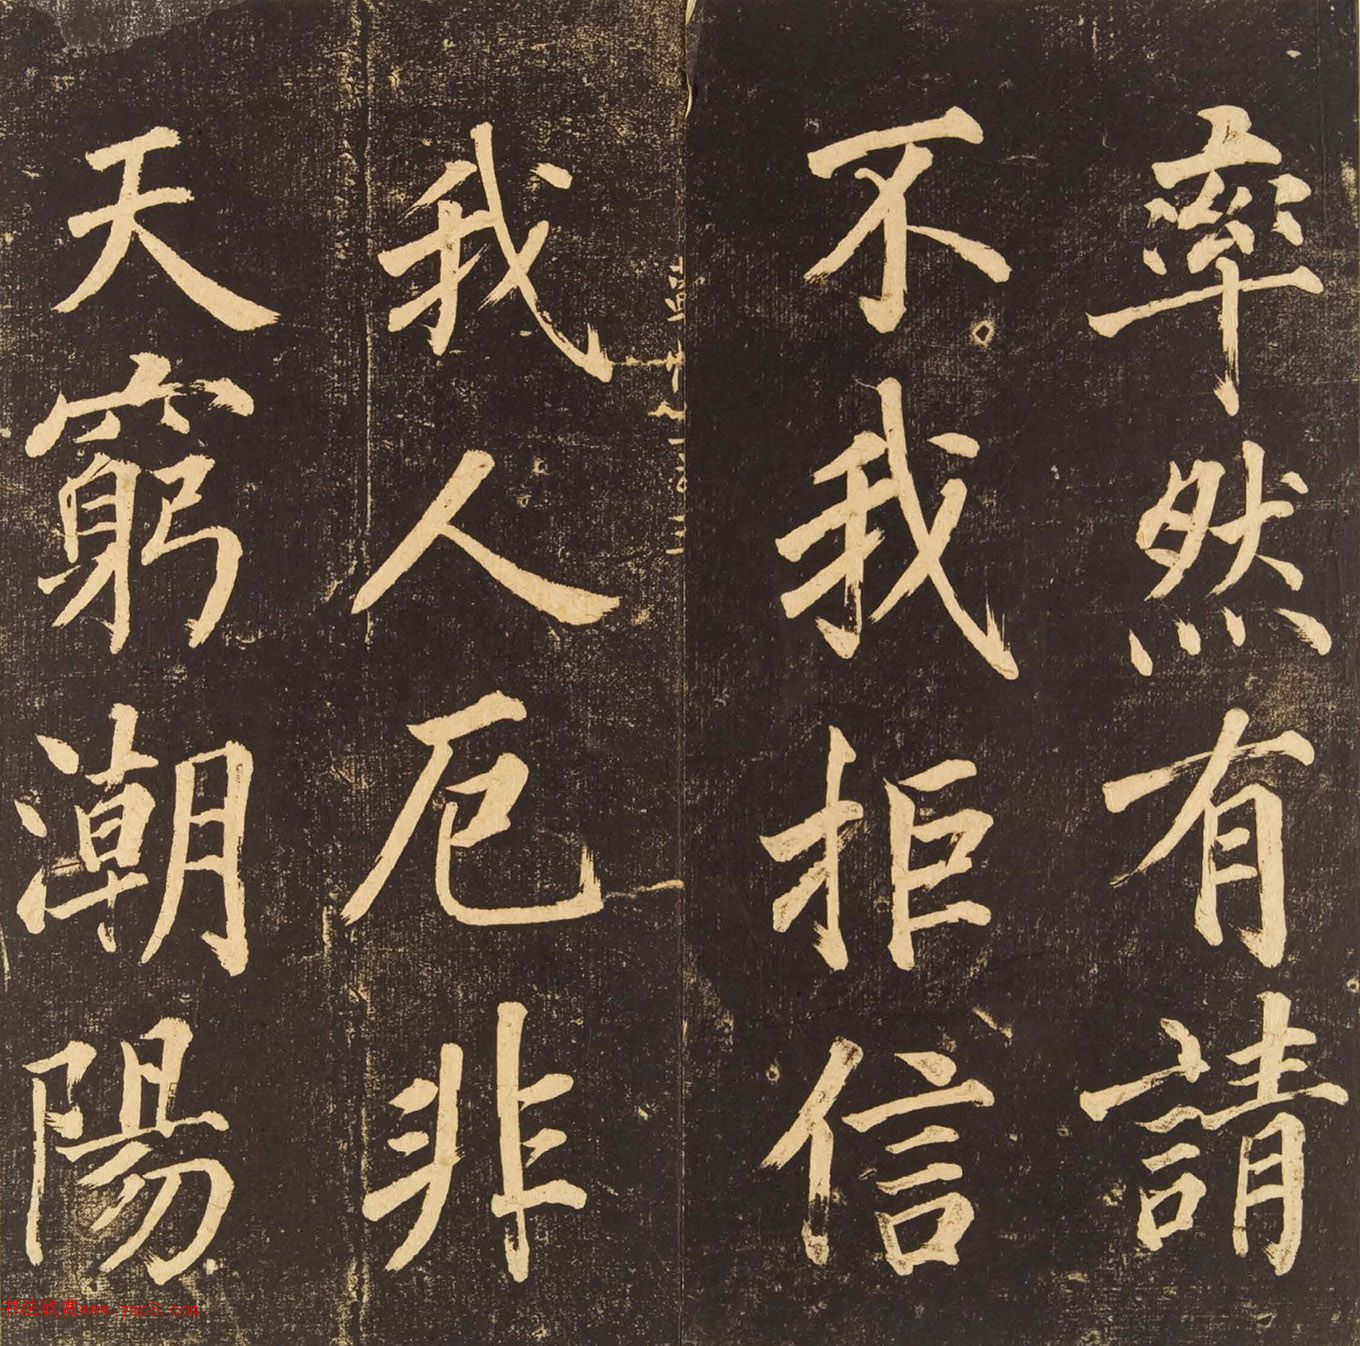 率然有請
不我拒信
我人厄非
天窮潮陽
书法欣赏www.yac8.com